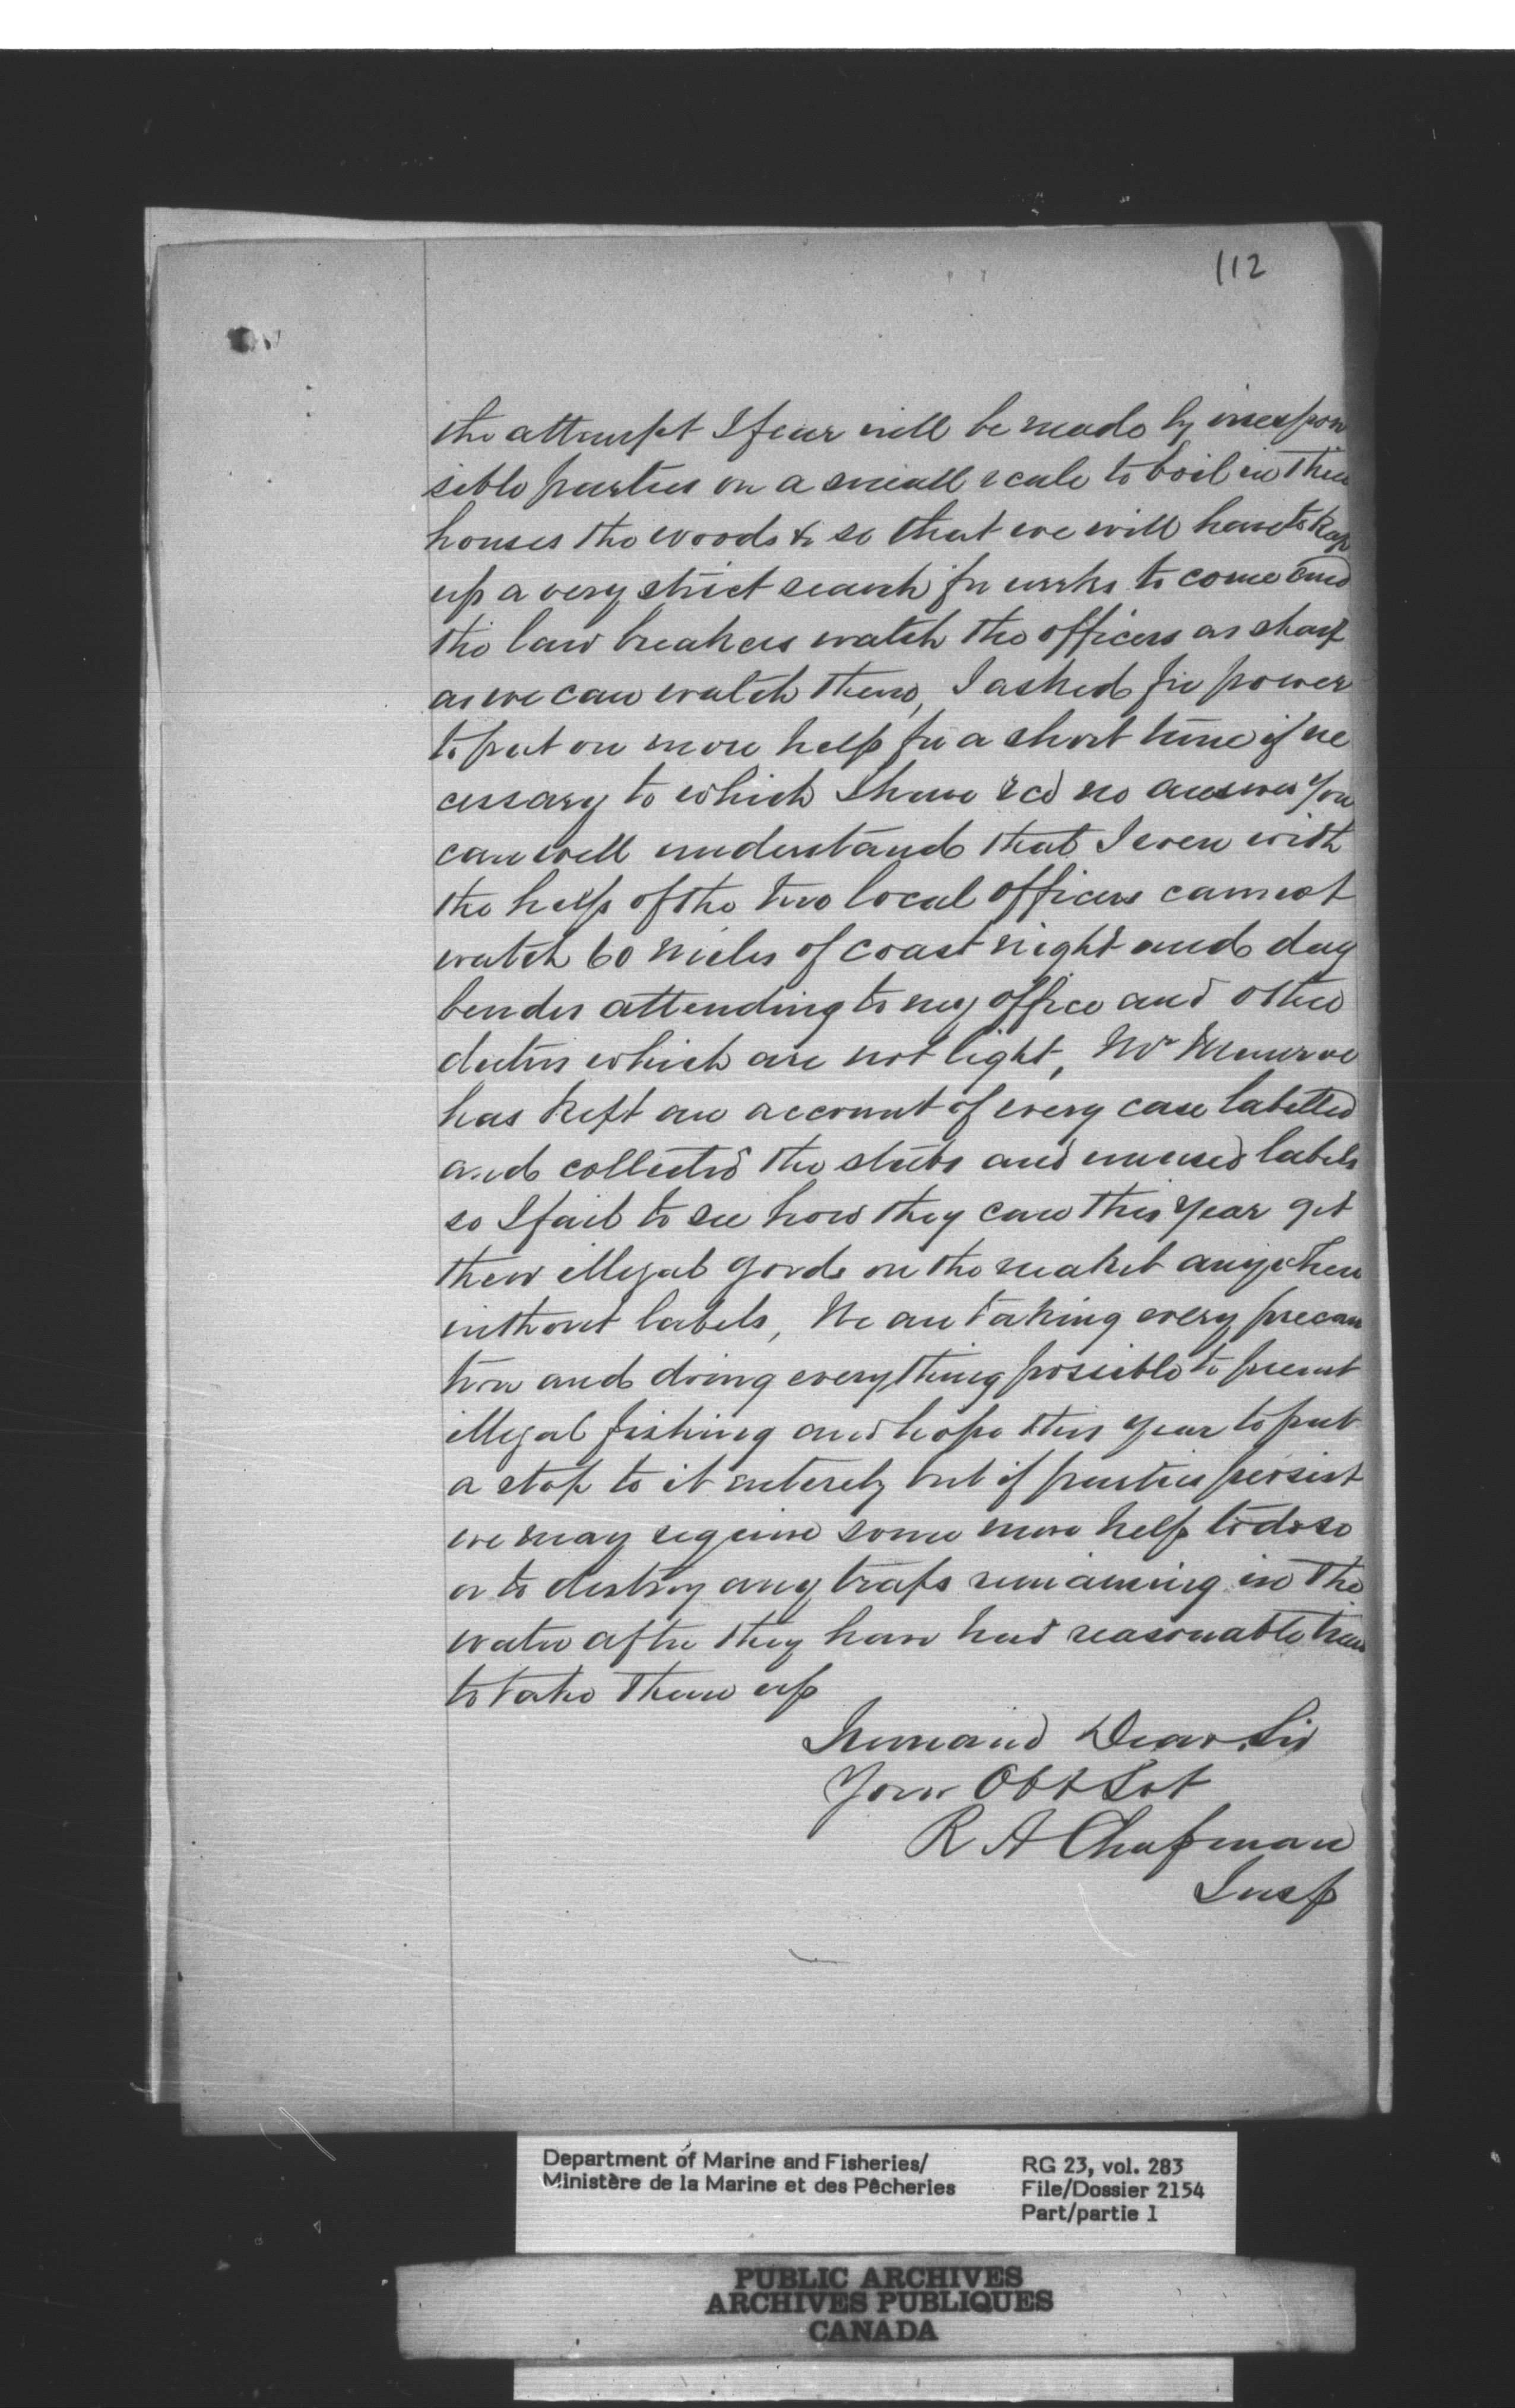 112
the attempt I fear will be made by irrespon
sible parties on a small scale to boil in their
houses the woods &c so that we will have to keep
up a very strict search for weeks to come and
the law breakers watch the officers as sharp
as we can watch them, I asked for power
to put on more help for a short time if ne
cessary to which I have rcd no answer You
can well understand that I even with
the help of the two local officers cannot
watch 60 miles of coast night and day
besides attending to my office and other
duties which are not light, Mr Munroe
has kept an account of every case labelled
and collected the stubs and unused labels
so I fail to see how they can this year get
their illegal goods on the market anywhere
without labels, We are taking every precau
tion and doing everything possible to prevent
illegal fishing and hope this year to put
a stop to it entirely but if parties persist
we may require some more help to do so
or to destroy any traps remaining in the
water after they have had reasonable time
to take them up
I remain Dear Sir
Your Obt Svt
R A Chapman
Insp
Department of Marine and Fisheries/
Ministère de la Marine et des Pêcheries
RG 23, vol. 283
File/Dossier 2154
Part/partie 1
PUBLIC ARCHIVES
ARCHIVES PUBLIQUES
CANADA